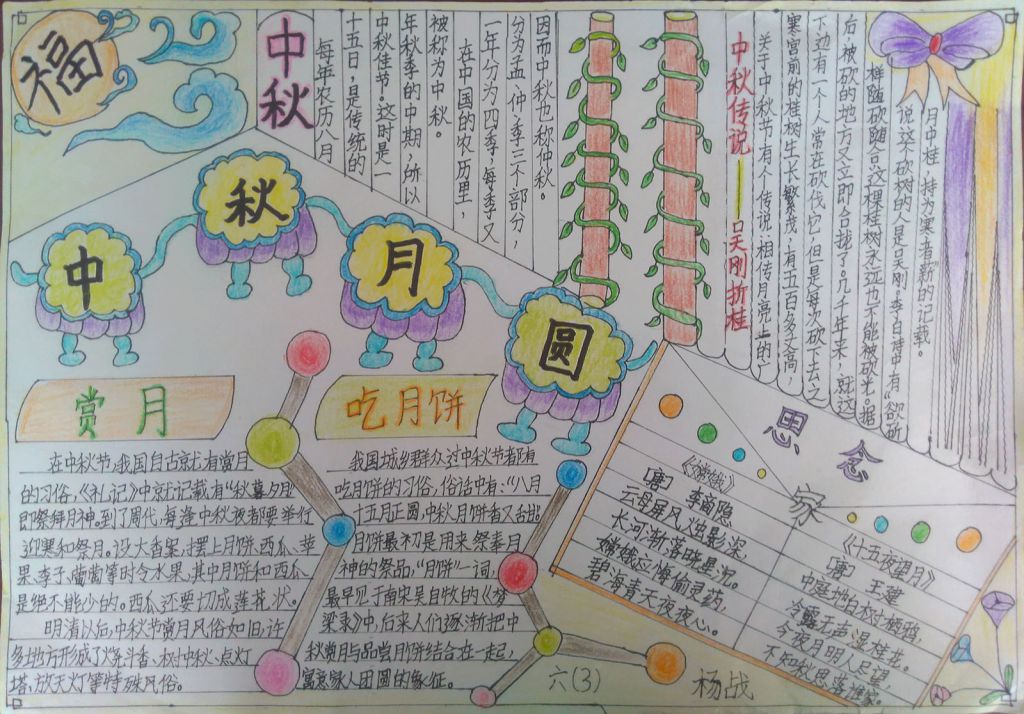 福
中秋
每年农历八月
十五日，是传统的
中秋佳节。这时是一
年秋季的中期，所以
被称为中秋。
在中国的农历里，
一年分为四季，每季又
分为孟、仲、季三个部分，
因而中秋也称仲秋。
中秋传说——吴刚折桂
关于中秋节有人传说：相传月亮上的广
寒宫前的桂树生长繁茂，有五百多丈高，
下边有一个人常在砍伐它，但是每次砍下去之
后，被砍的地方又立即合拢了。几千年来，就这
样随砍随合，这棵桂树永远也不能被砍光。据
说这个砍树的人是吴刚，李白诗中有“欲斫
月中桂，持为寒者薪的记载。
中秋月圆
赏月
在中秋节，我国自古就有赏月
的习俗，《礼记》中就记载有“秋暮夕月”
即祭拜月神。到了周代，每逢中秋夜都要举行
迎寒和祭月。设大香案，摆上月饼、西瓜、苹
果、李子、葡萄等时令水果，其中月饼和西瓜
是绝不能少的。西瓜还要切成莲花状。
明清以后，中秋节赏月风俗如旧，许
多地方形成了烧斗香、树中秋、点灯
塔、放天灯等特殊风俗。
吃月饼
我国城乡群众过中秋节都有
吃月饼的习俗，俗话中有：“八月
十五月正圆，中秋月饼香又甜
月饼最初是用来祭奉月
神的祭品，“月饼”一词，
最早见于南宋吴自牧的《梦
梁录》中，后来人们逐渐把中
秋赏月与品尝月饼结合在一起，
寓意家人团圆的象征。
思念家
《嫦娥》
[唐] 李商隐
云母屏风烛影深，
长河渐落晓星沉。
嫦娥应悔偷灵药，
碧海青天夜夜心。
《十五夜望月》
[唐] 王建
中庭地白树栖鸦，
冷露无声湿桂花。
今夜月明人尽望，
不知秋思落谁家。
六(3)
杨战